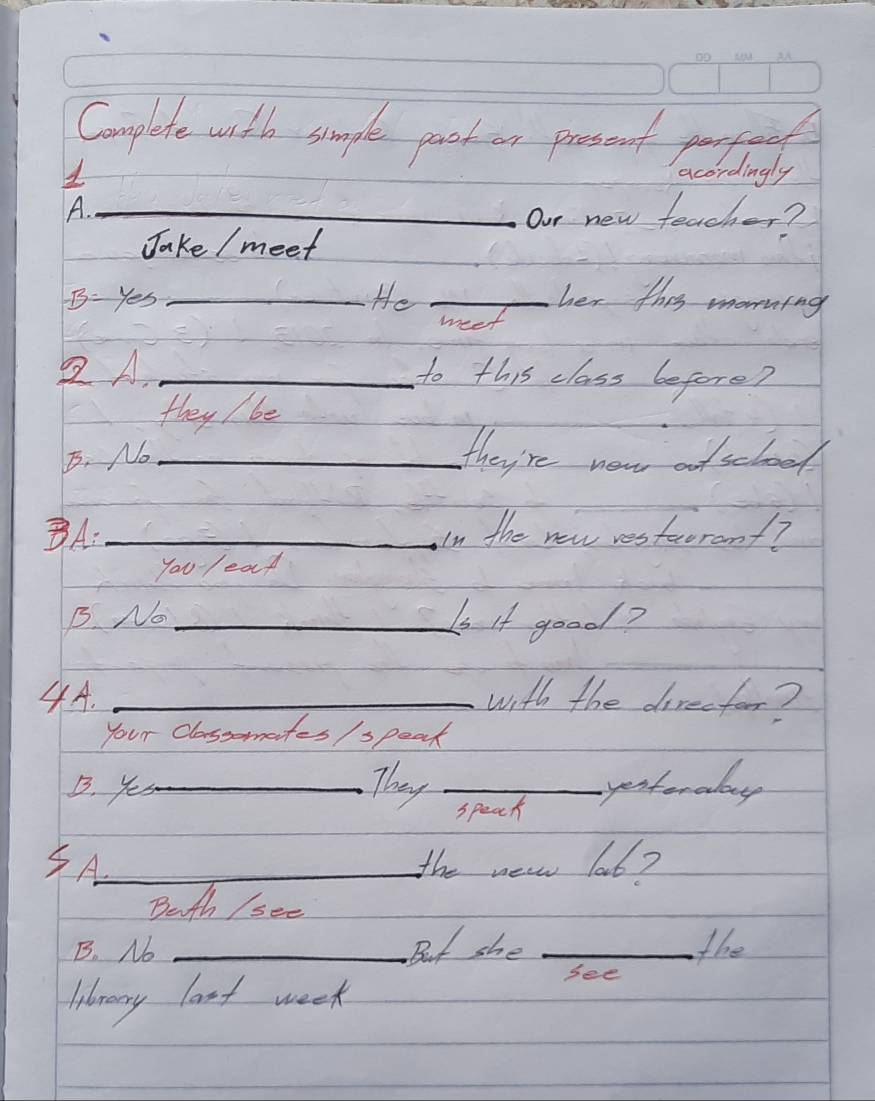 DD MM AA
Complete with simple past or present perfect
acordingly
1
A. ____________ Our new teacher?
Jake / meet
B= Yes ____________ He ________ her this morning
meet
2 A. ____________ to this class before?
they / be
B. No ____________ they're new at school
3 A: ____________ in the new restaurant?
You / eat
B. No ____________ Is it good?
4 A. ____________ with the director?
Your classmates / speak
B. Yes ____________. They ________ yesterday
speak
5 A. ____________ the new lab?
Beth / see
B. No ____________. But she ________ the
see
library last week